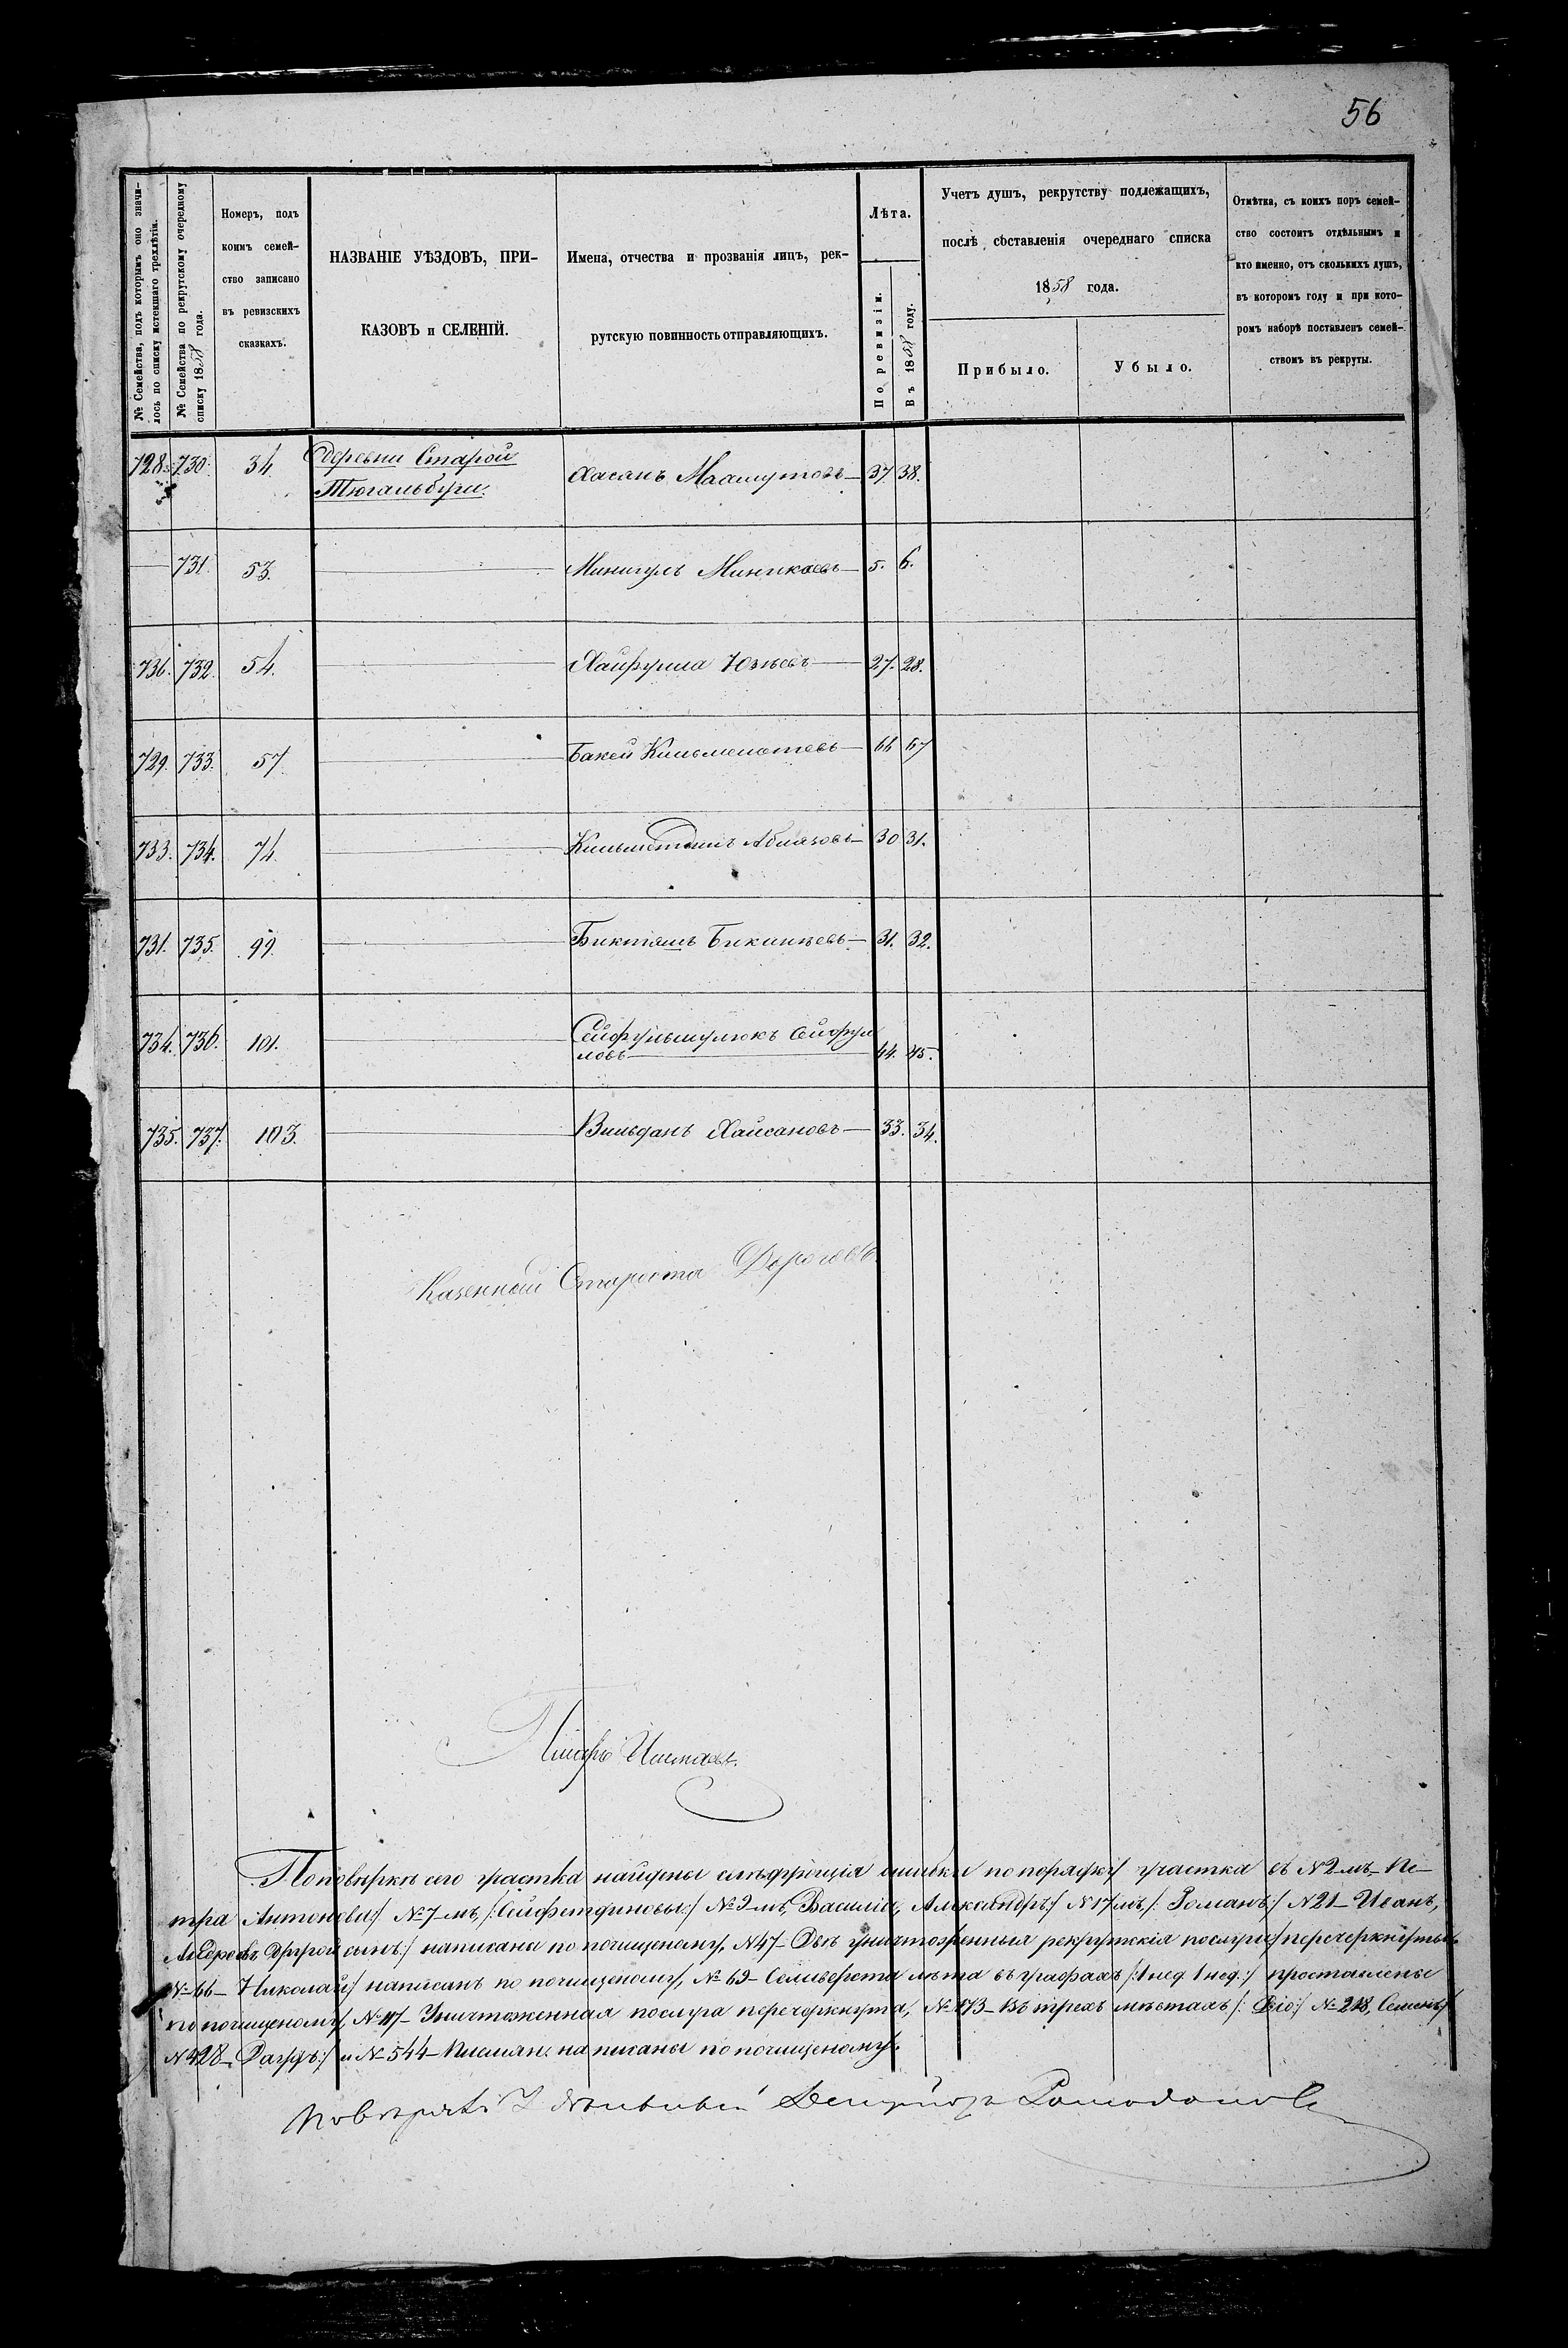 56
№ Семейства, подъ которымъ оно значи-
лось по списку истекшаго трелѣтія.
№ Семейства по рекрутскому очередному
списку 1858 года.
Номеръ, подъ
коимъ семей-
ство записано
въ ревизскихъ
сказкахъ.
НАЗВАНІЕ УѢЗДОВЪ, ПРИ-
КАЗОВЪ и СЕЛЕНІЙ.
Имена, отчества и прозванія лицъ, рек-
рутскую повинность отправляющихъ.
Лѣта.
По ревизіи.
Въ 1858 году.
Учетъ душъ, рекрутству подлежащихъ,
послѣ составленія очереднаго списка
1858 года.
Прибыло.
Убыло.
Отмѣтка, съ коихъ поръ семей-
ство состоитъ отдѣльнымъ и
кто именно, отъ сколькихъ душъ,
въ которомъ году и при кото-
ромъ наборѣ поставленъ семей-
ствомъ въ рекруты.
728. 730. 34. Деревни Старой Хасянъ Маашутовъ 37. 38.
Тюгальбуги.
731. 53. Минигулъ Миникаевъ 5. 6.
736. 732. 54. Хайфулла Юзѣевъ 27. 28.
729. 733. 57. Бакей Кильмометевъ 66 67
733. 734. 74. Абляповъ 30 31.
731. 735. 99. Бикташъ Бикинѣевъ 31. 32.
734. 736. 101. Сейфул
ловъ 44. 45.
735. 737. 103. Вильданъ Хайсановъ 33. 34.
Казенный Староста Дороговъ
Писарь
По повѣркѣ сего участка найдены слѣдующія ошибки по порядку участка въ №2мъ - Пе-
тра Антоновы:/ №7-мъ, /:Сейфетдиновы:/ №9-мъ, Василій, Александръ:/ №17мъ /: Романъ:/ №21- Иванъ,
другой сынъ:/ написаны по почищеному, №47- Двѣ уничтоженныя рекрутскія послуги перечеркнуты
№66- Николай:/ написанъ по почищеному, №69- Селиверста лѣта въ графахъ /:1 нед. 1 нед:/ проставлены
по почищеному, №117- Уничтоженная послуга перечеркнута, №173- Въ трехъ мѣстахъ №218, Семенъ:/
№428- и №544- написаны по почищеному.
Повѣрялъ